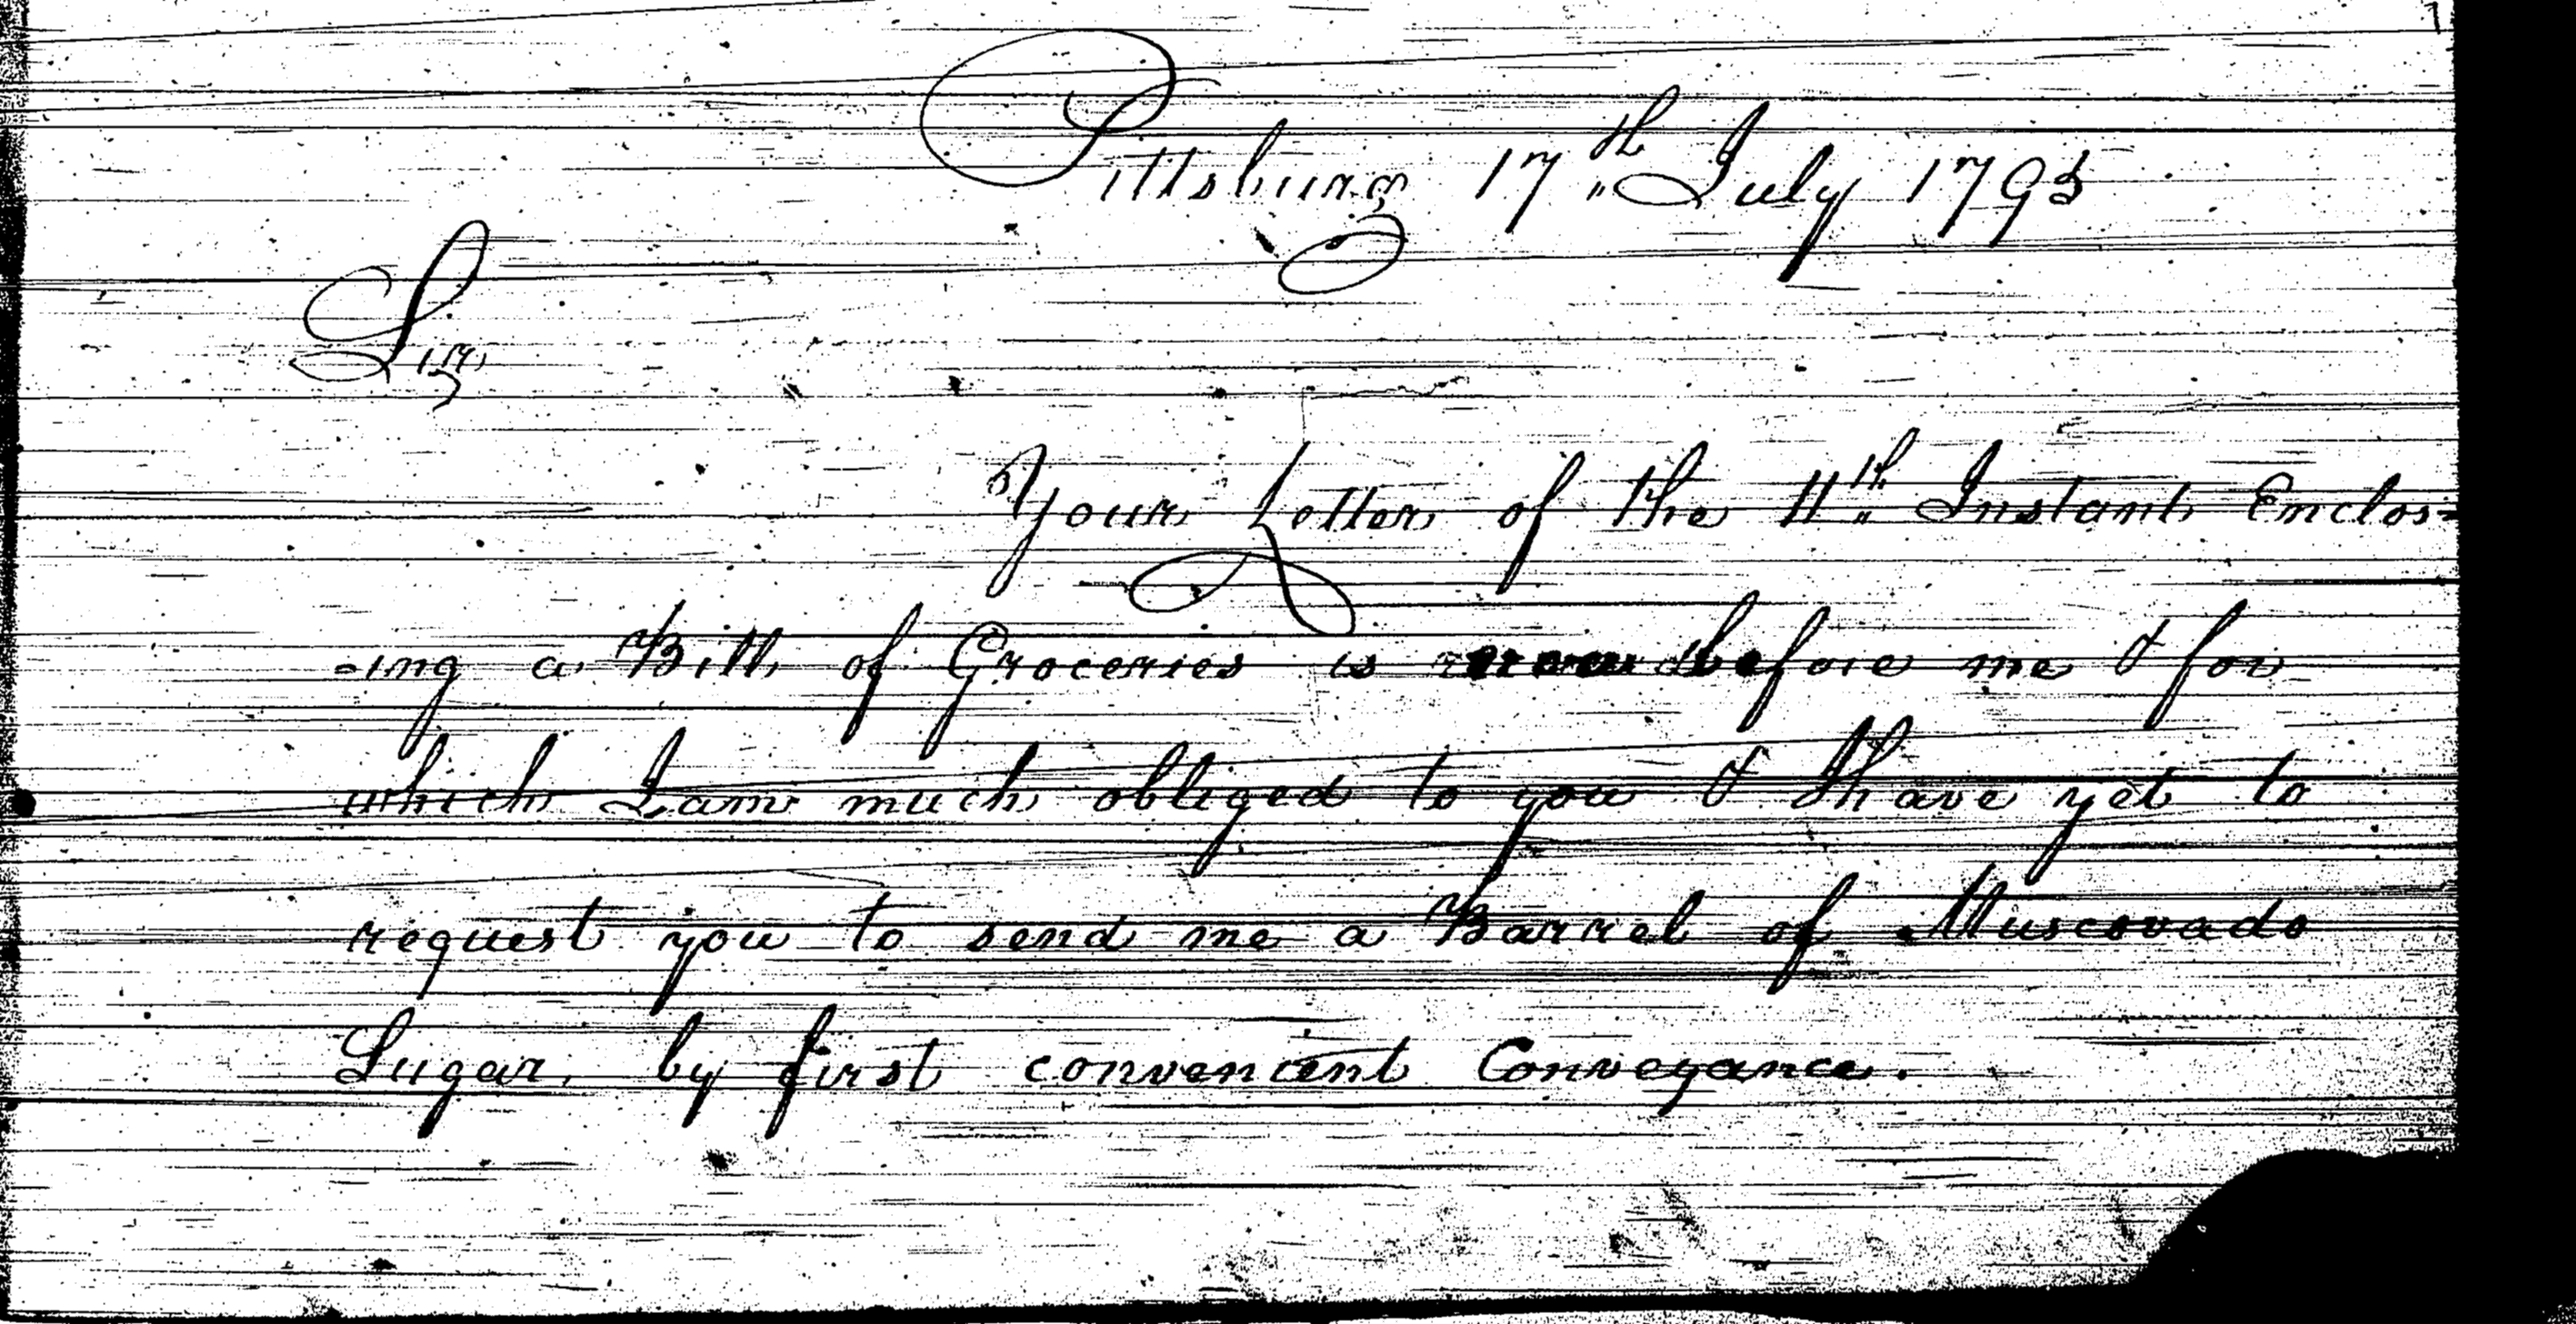 Pittsburg 17th July 1795
Sir,
Your Letter of the 11th Instant Enclos=
=ing a Bill of Groceries is before me & for
which I am much obliged to you & I have yet to
request you to send me a Barrel of Muscovado
Sugar, by first convenient Conveyance.